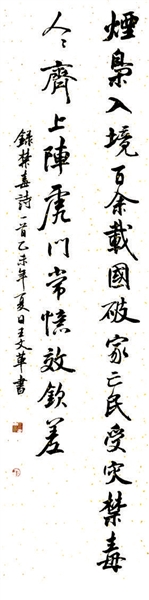 煙梟入境百余載國破家亡民受灾禁毒
人々齊上陣虎门常憶效欽差
錄禁毒詩一首乙未年夏日王文華書